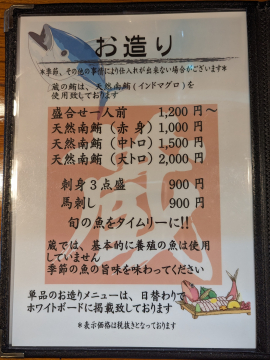 お造り
*季節、その他の事情により仕入れが出来ない場合がございます*
蔵の鮪は、天然南鮪(インドマグロ)を
使用致しております
盛合せ一人前 1,200 円〜
天然南鮪(赤 身) 1,000 円
天然南鮪(中トロ) 1,500 円
天然南鮪(大トロ) 2,000 円
刺身3点盛 900 円
馬刺し 900 円
旬の魚をタイムリーに!!
蔵では、基本的に養殖の魚は使用
していません
季節の魚の旨味を味わってください
単品のお造りメニューは、日替わりで
ホワイトボードに掲載致しております
*表示価格は税抜きとなっています
蔵